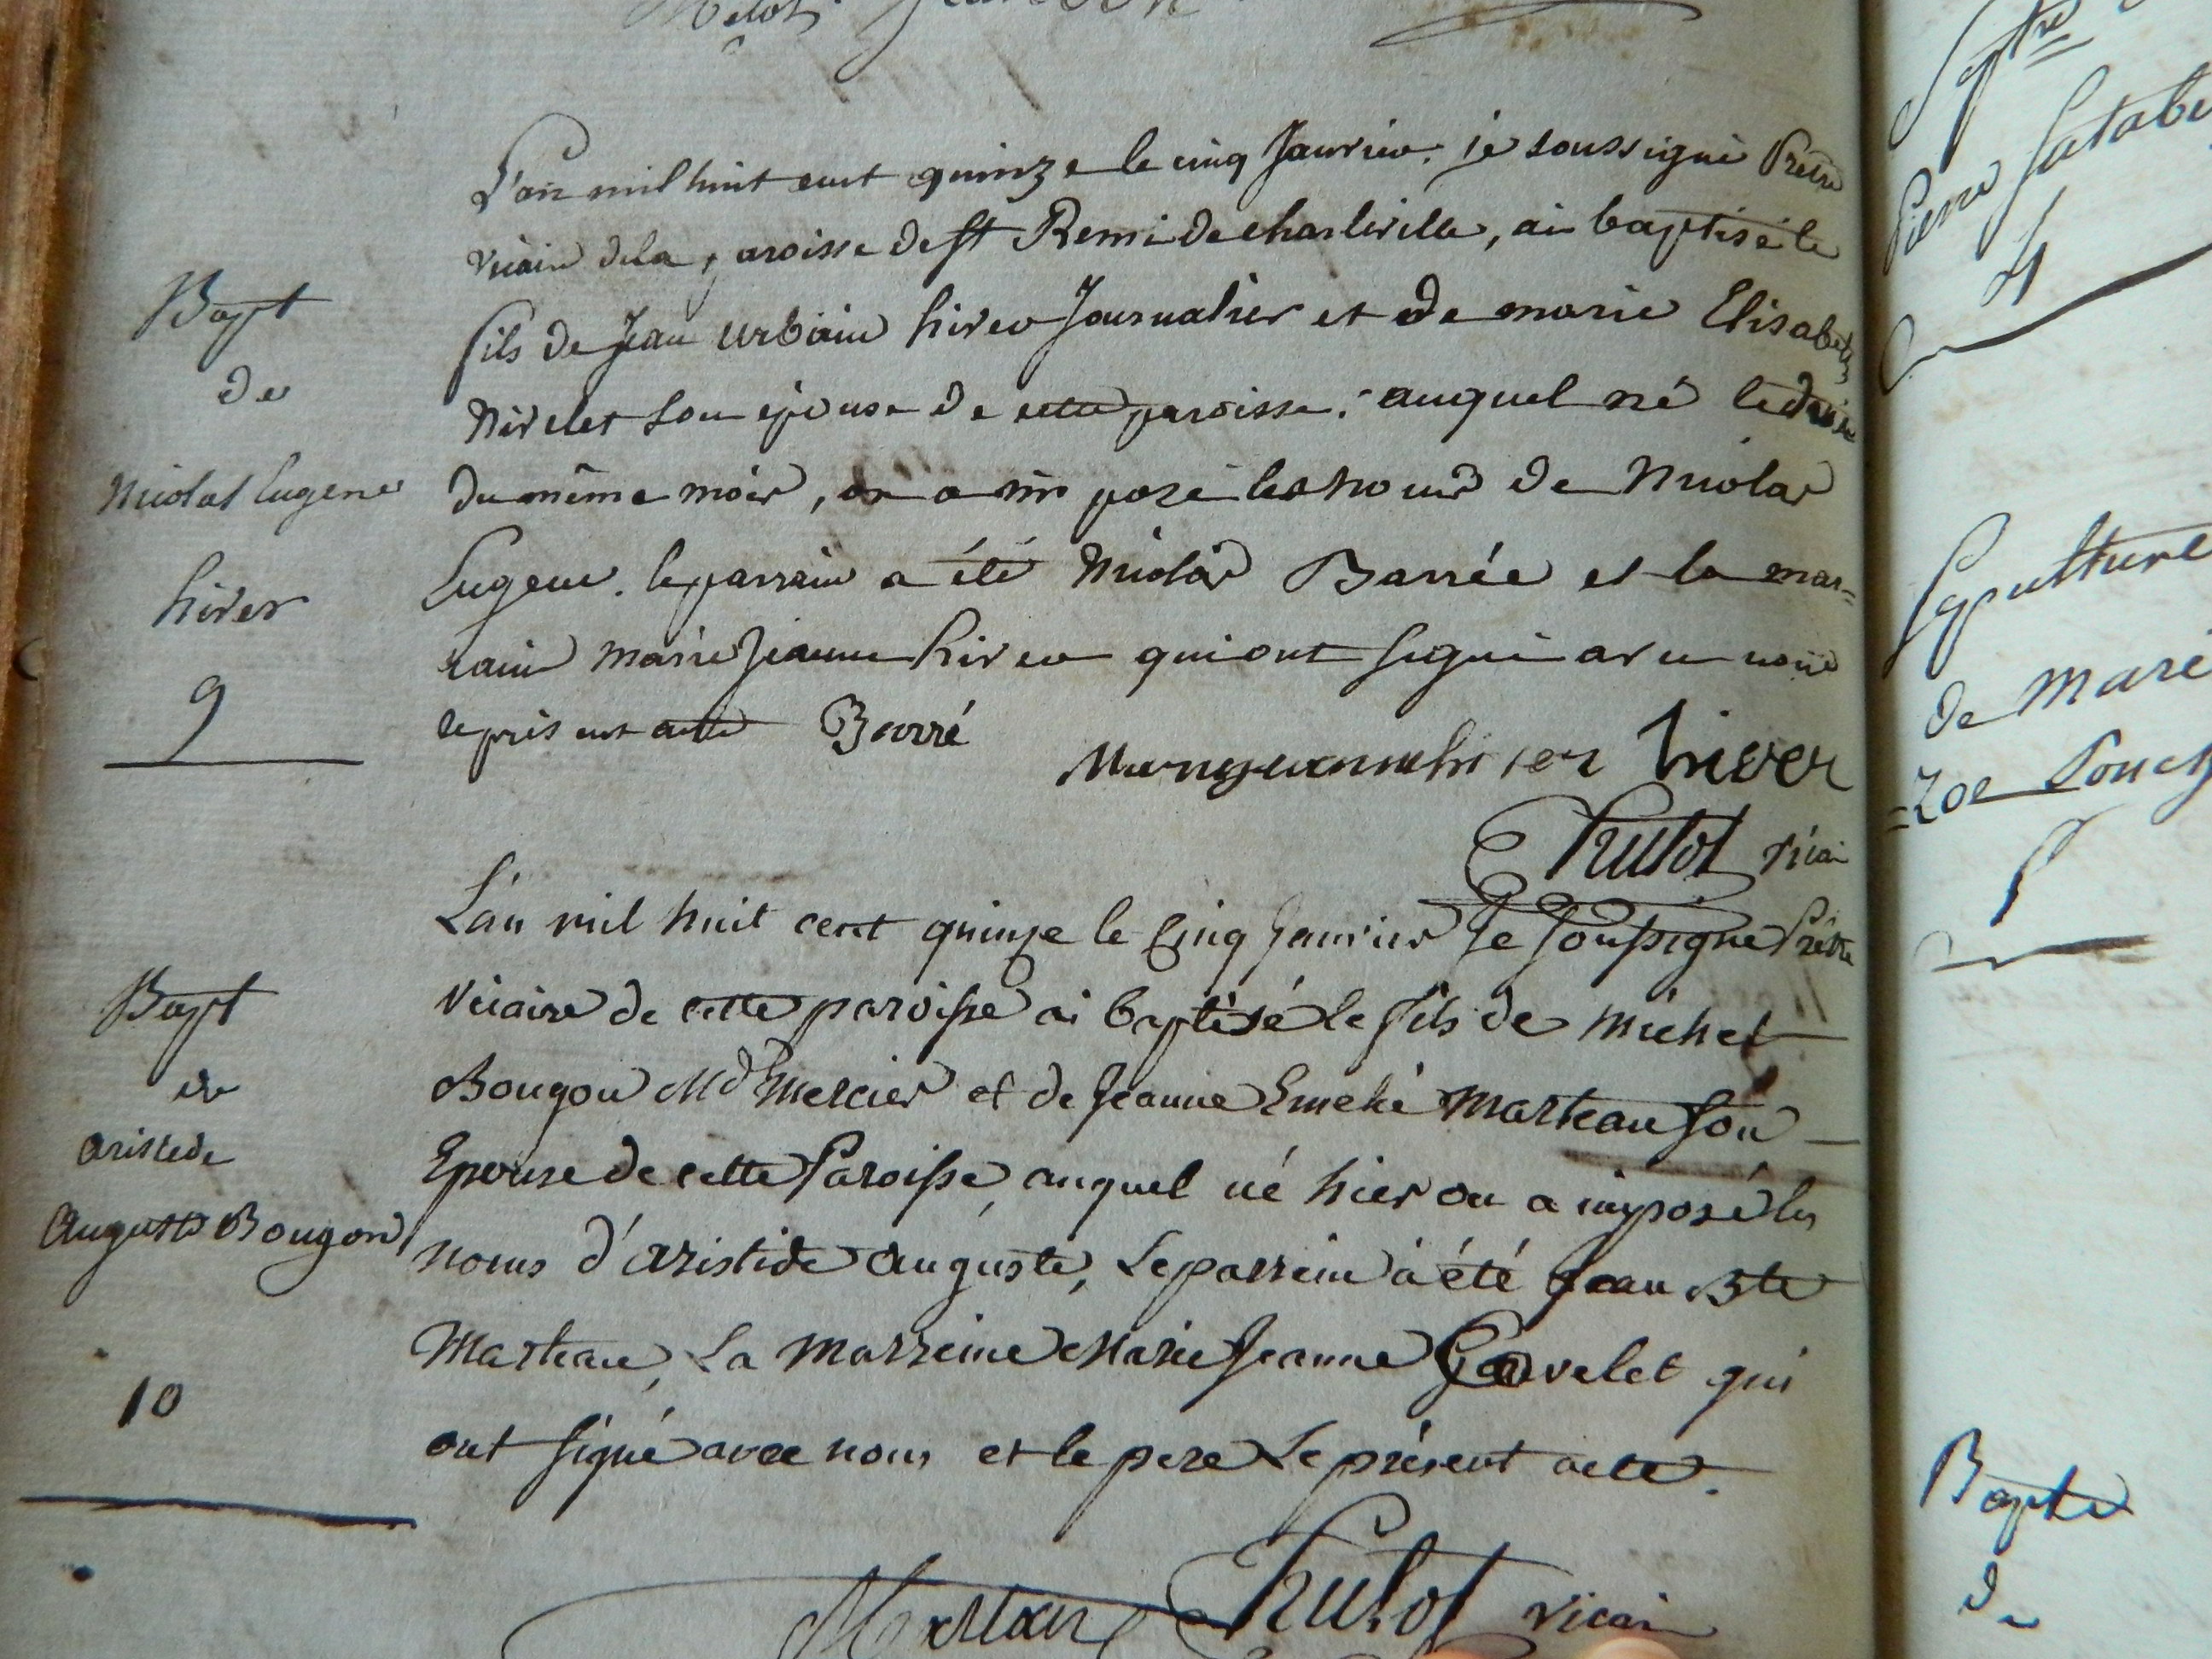 Bapt
de
Nicolas Eugene
hiver
9
L'an mil huit cent quinze le cinq Janvier. je soussigné Pretre
vicaire dela paroisse de st Remi de charleville, ai baptisé le
fils de Jean urbain hiver Journalier et de marie Elisabeth
Nivelet son épouse de cette paroisse. auquel né le
du même mois, on a im posé les noms de Nicolas
Eugene. le parrain a été Nicolas Barrée et la mar=
raine marie Jeanne hiver qui ont signé avec nous
le présent acte Barré
hiver
Hulot vicai
Bapt
de
aristide
Auguste Bougon
10
L'an mil huit cent quinze le Cinq Janvier Je Soussigné Prêtre
Vicaire de cette paroisse ai baptisé le fils de Michel
Bougon Md Mercier et de Jeanne Emelie Marteau Son
Epouse de cette Paroisse, auquel né hier on a imposé les
noms d'aristide auguste, Le parrein a été Jean Bte
Marteau, La Marreine Marie Jeanne qui
ont Signé avec nous et le pere Le présent acte.
Marteau Hulot vicai
Pierre
Sepulture
de Marie
Zoé
Bapte
de